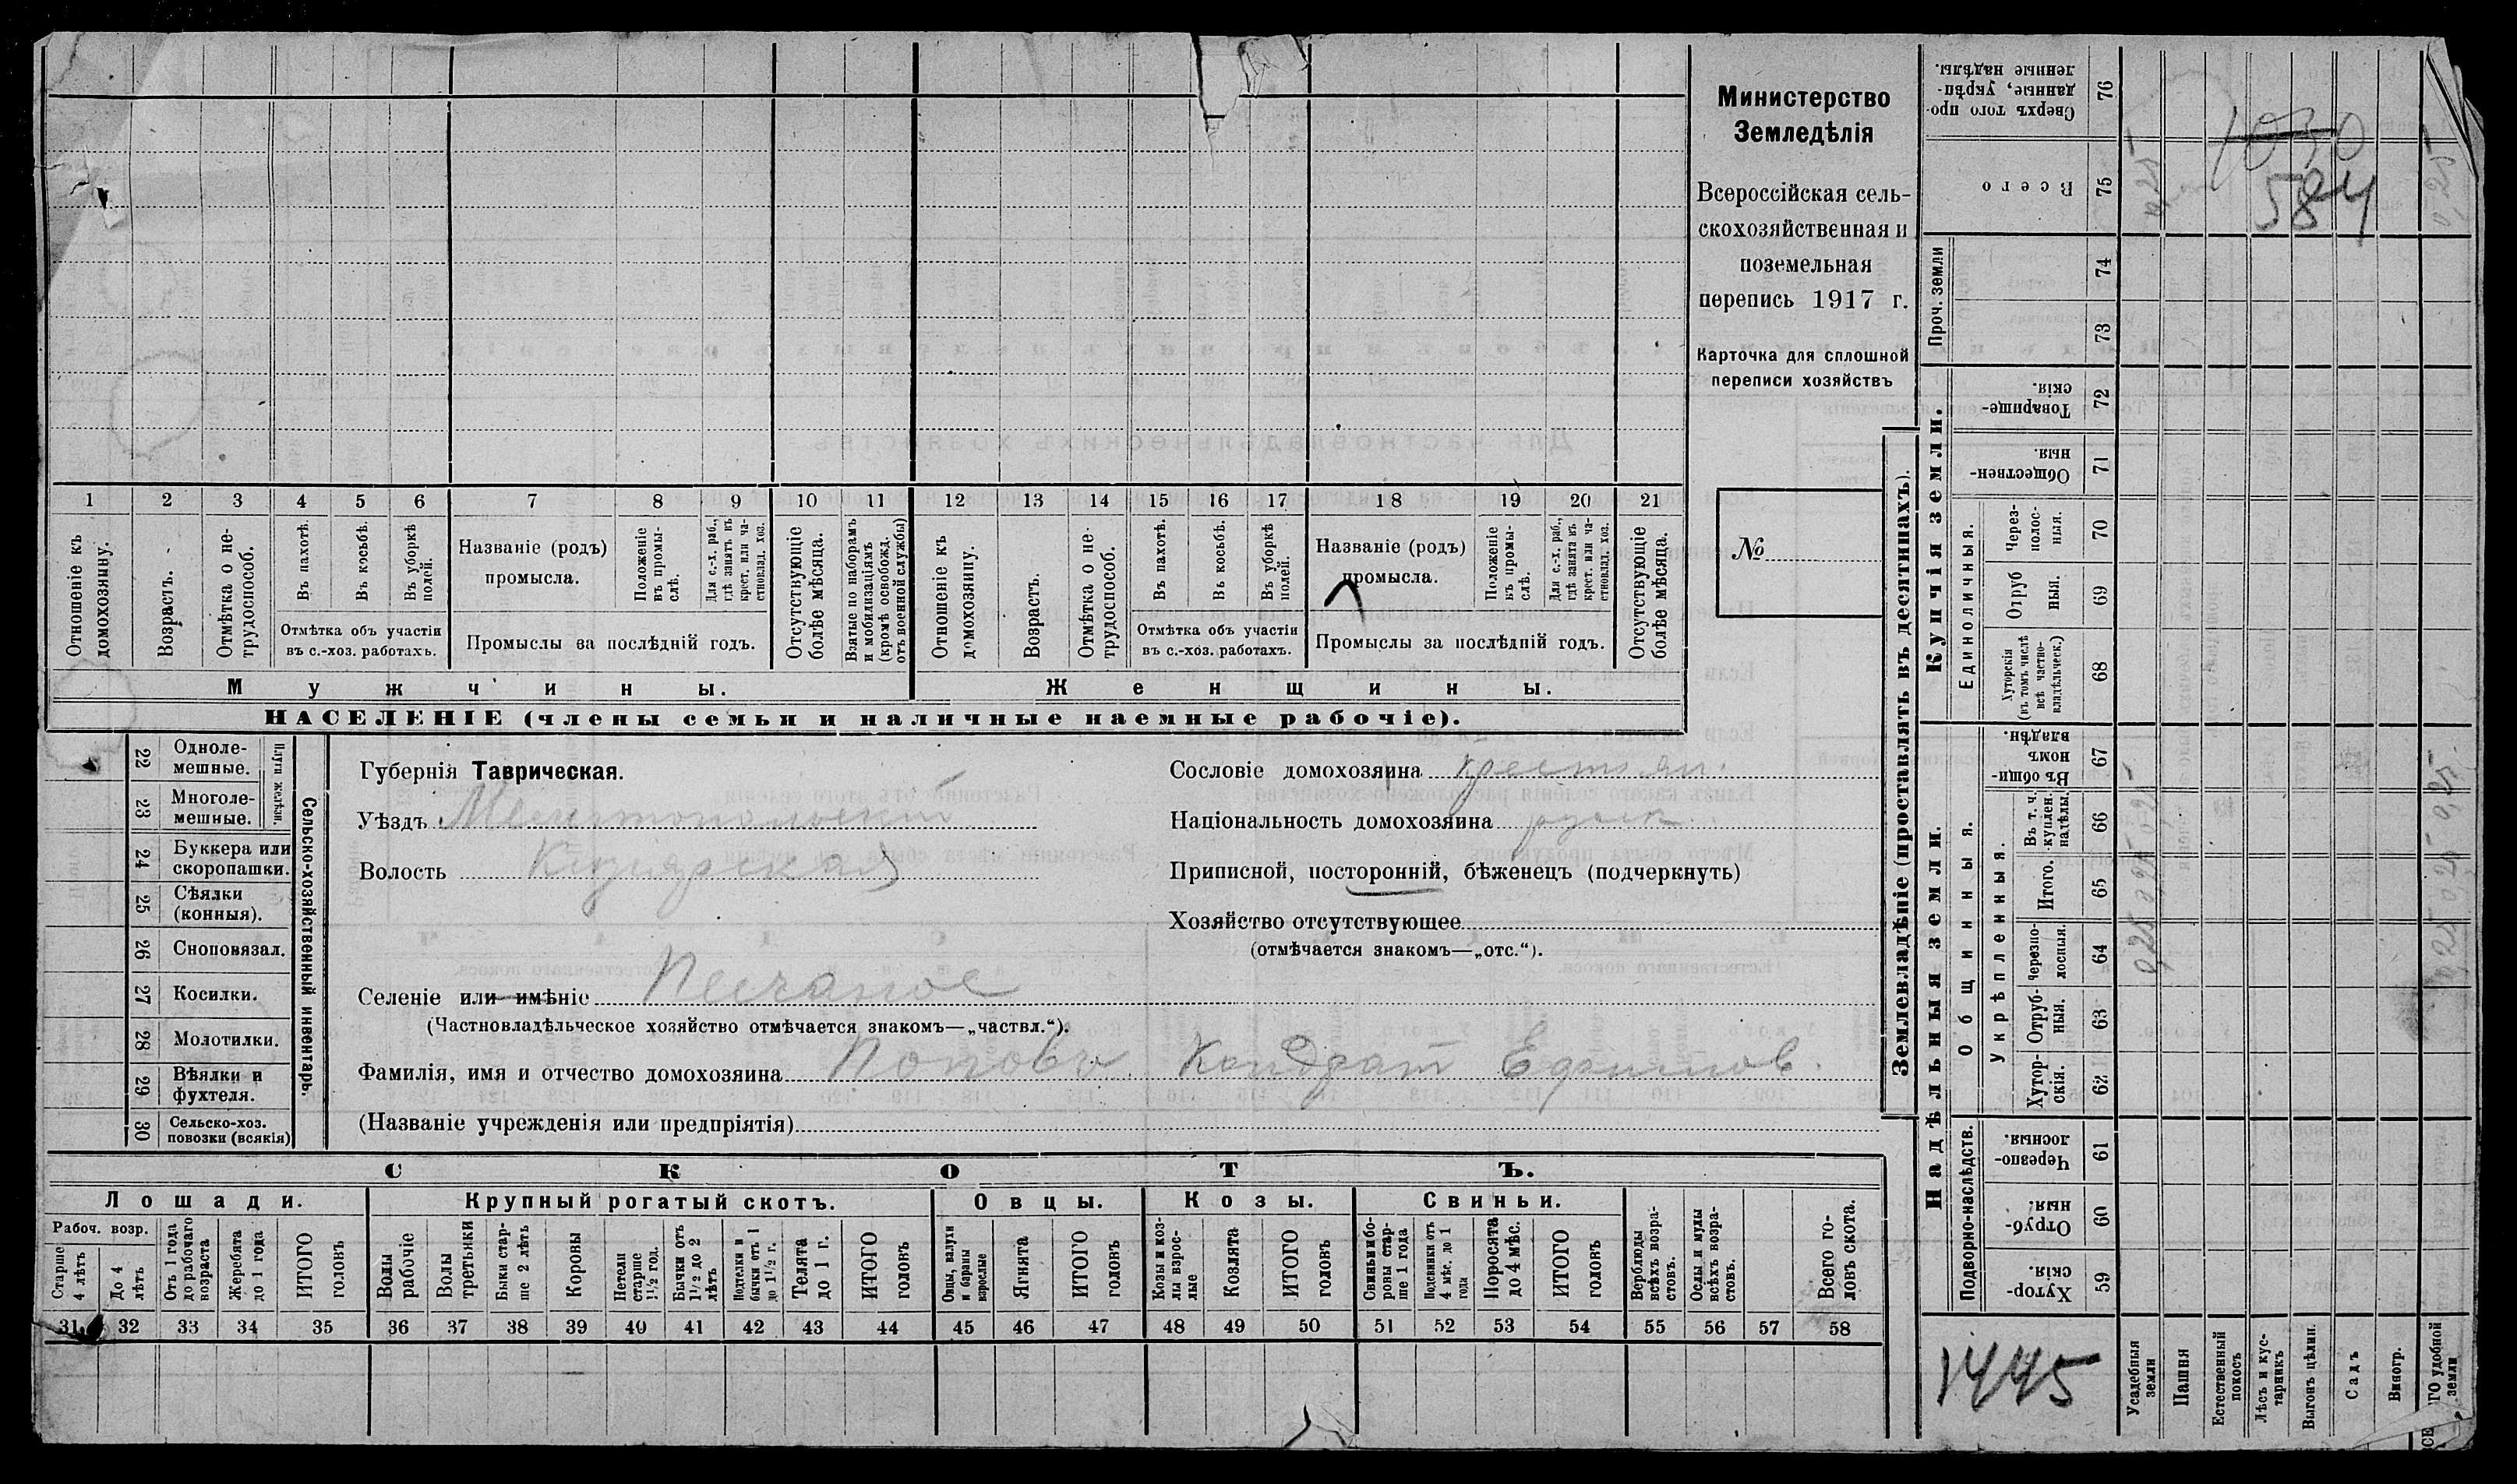 Министерство
Земледѣлія
Всероссійская сель-
скохозяйственная и
поземельная
перепись 1917 г.
Карточка для сплошной
переписи хозяйствъ
№
1 2 3 4 5 6 7 8 9 10 11 12 13 14 15 16 17 18 19 20 21
Отношеніе къ домохозяину.
Возрастъ.
Отмѣтка о не-трудоспособ.
Въ пахотѣ.
Въ косьбѣ.
Въ уборкѣ полей.
Отмѣтка объ участіи
въ с.-хоз. работахъ.
Названіе (родъ)
промысла.
Положеніе въ промы-слѣ.
Для с.-х. раб., гдѣ занятъ въ крест. или ча-стновлад. хоз.
Промыслы за послѣдній годъ.
Отсутствующіе болѣе мѣсяца.
Взятые по наборамъ и мобилизаціямъ (кромѣ освобожд. отъ военной службы)
Отношеніе къ домохозяину.
Возрастъ.
Отмѣтка о не-трудоспособ.
Въ пахотѣ.
Въ косьбѣ.
Въ уборкѣ полей.
Отмѣтка объ участіи
въ с.-хоз. работахъ.
Названіе (родъ)
промысла.
Положеніе въ промы-слѣ.
Для с.-х. раб., гдѣ занята въ крест. или ча-стновлад. хоз.
Промыслы за послѣдній годъ.
Отсутствующіе болѣе мѣсяца.
Мужчины.
Женщины.
НАСЕЛЕНІЕ (члены семьи и наличные наемные рабочіе).
22 Одноле-мешные.
23 Многоле-мешные.
Плуги желѣзн.
24 Буккера или скоропашки.
25 Сѣялки (конныя).
26 Сноповязал.
27 Косилки.
28 Молотилки.
29 Вѣялки и фухтеля.
30 Сельско-хоз. повозки (всякія)
Сельско-хозяйственный инвентарь.
Губернія Таврическая.
Уѣздъ Мелитопольскій
Волость Кизіярская
Селеніе или имѣніе Песчаное
(Частновладѣльческое хозяйство отмѣчается знакомъ—„частвл.“).
Фамилія, имя и отчество домохозяина Поповъ Кондрат Ефимов.
(Названіе учрежденія или предпріятія)
Сословіе домохозяина крестьян.
Національность домохозяина русск.
Приписной, посторонній, бѣженецъ (подчеркнуть)
Хозяйство отсутствующее
(отмѣчается знакомъ—„отс.“).
СКОТЪ.
Лошади. Крупный рогатый скотъ. Овцы. Козы. Свиньи.
Рабоч. возр.
Старше 4 лѣтъ
До 4 лѣтъ
Отъ 1 года до рабочаго возраста
Жеребята до 1 года
ИТОГО головъ
Волы рабочіе
Волы третьяки
Быки стар-ше 2 лѣтъ
Коровы
Нетели старше 1½ год.
Бычки отъ 1½ до 2 лѣтъ
Подтелки и бычки отъ 1 до 1½ г.
Телята до 1 г.
ИТОГО головъ
Овцы, валухи и бараны взрослые
Ягнята
ИТОГО головъ
Козы и коз-лы взрос-лые
Козлята
ИТОГО головъ
Свиньи и бо-ровы стар-ше 1 года
Подсвинки отъ 4 мѣс. до 1 года
Поросята до 4 мѣс.
ИТОГО головъ
Верблюды всѣхъ возра-стовъ.
Ослы и мулы всѣхъ возра-стовъ.
Всего го-ловъ скота.
31 32 33 34 35 36 37 38 39 40 41 42 43 44 45 46 47 48 49 50 51 52 53 54 55 56 57 58
Землевладѣніе (проставлять въ десятинахъ).
Купчія земли.
Надѣльныя земли.
Сверхъ того про-данные, укрѣп-ленные надѣлы. 76
Всего 75
Проч. земли 74
73
Товарище-скія. 72
Обществен-ныя. 71
Единоличныя.
Через-полос-ныя. 70
Отруб ныя. 69
Хуторскія (въ томъ числѣ всѣ частно-владѣльческ.) 68
Общинныя.
Въ общин-номъ владѣн. 67
Укрѣпленныя.
Въ т. ч. куплен. надѣлы. 66
Итого. 65
Черезпо-лосныя. 64
Отруб-ныя. 63
Хутор-скія. 62
Подворно-наслѣдств.
Черезпо-лосныя. 61
Отруб-ныя. 60
Хутор-скія. 59
Усадебныя земли
Пашня
Естественный покосъ
Лѣсъ и кус-тарникъ
Выгонъ цѣлин.
Садъ
Виногр.
ГО удобной земли
0,25
0,25
0,25
0,25
1030
584
1445